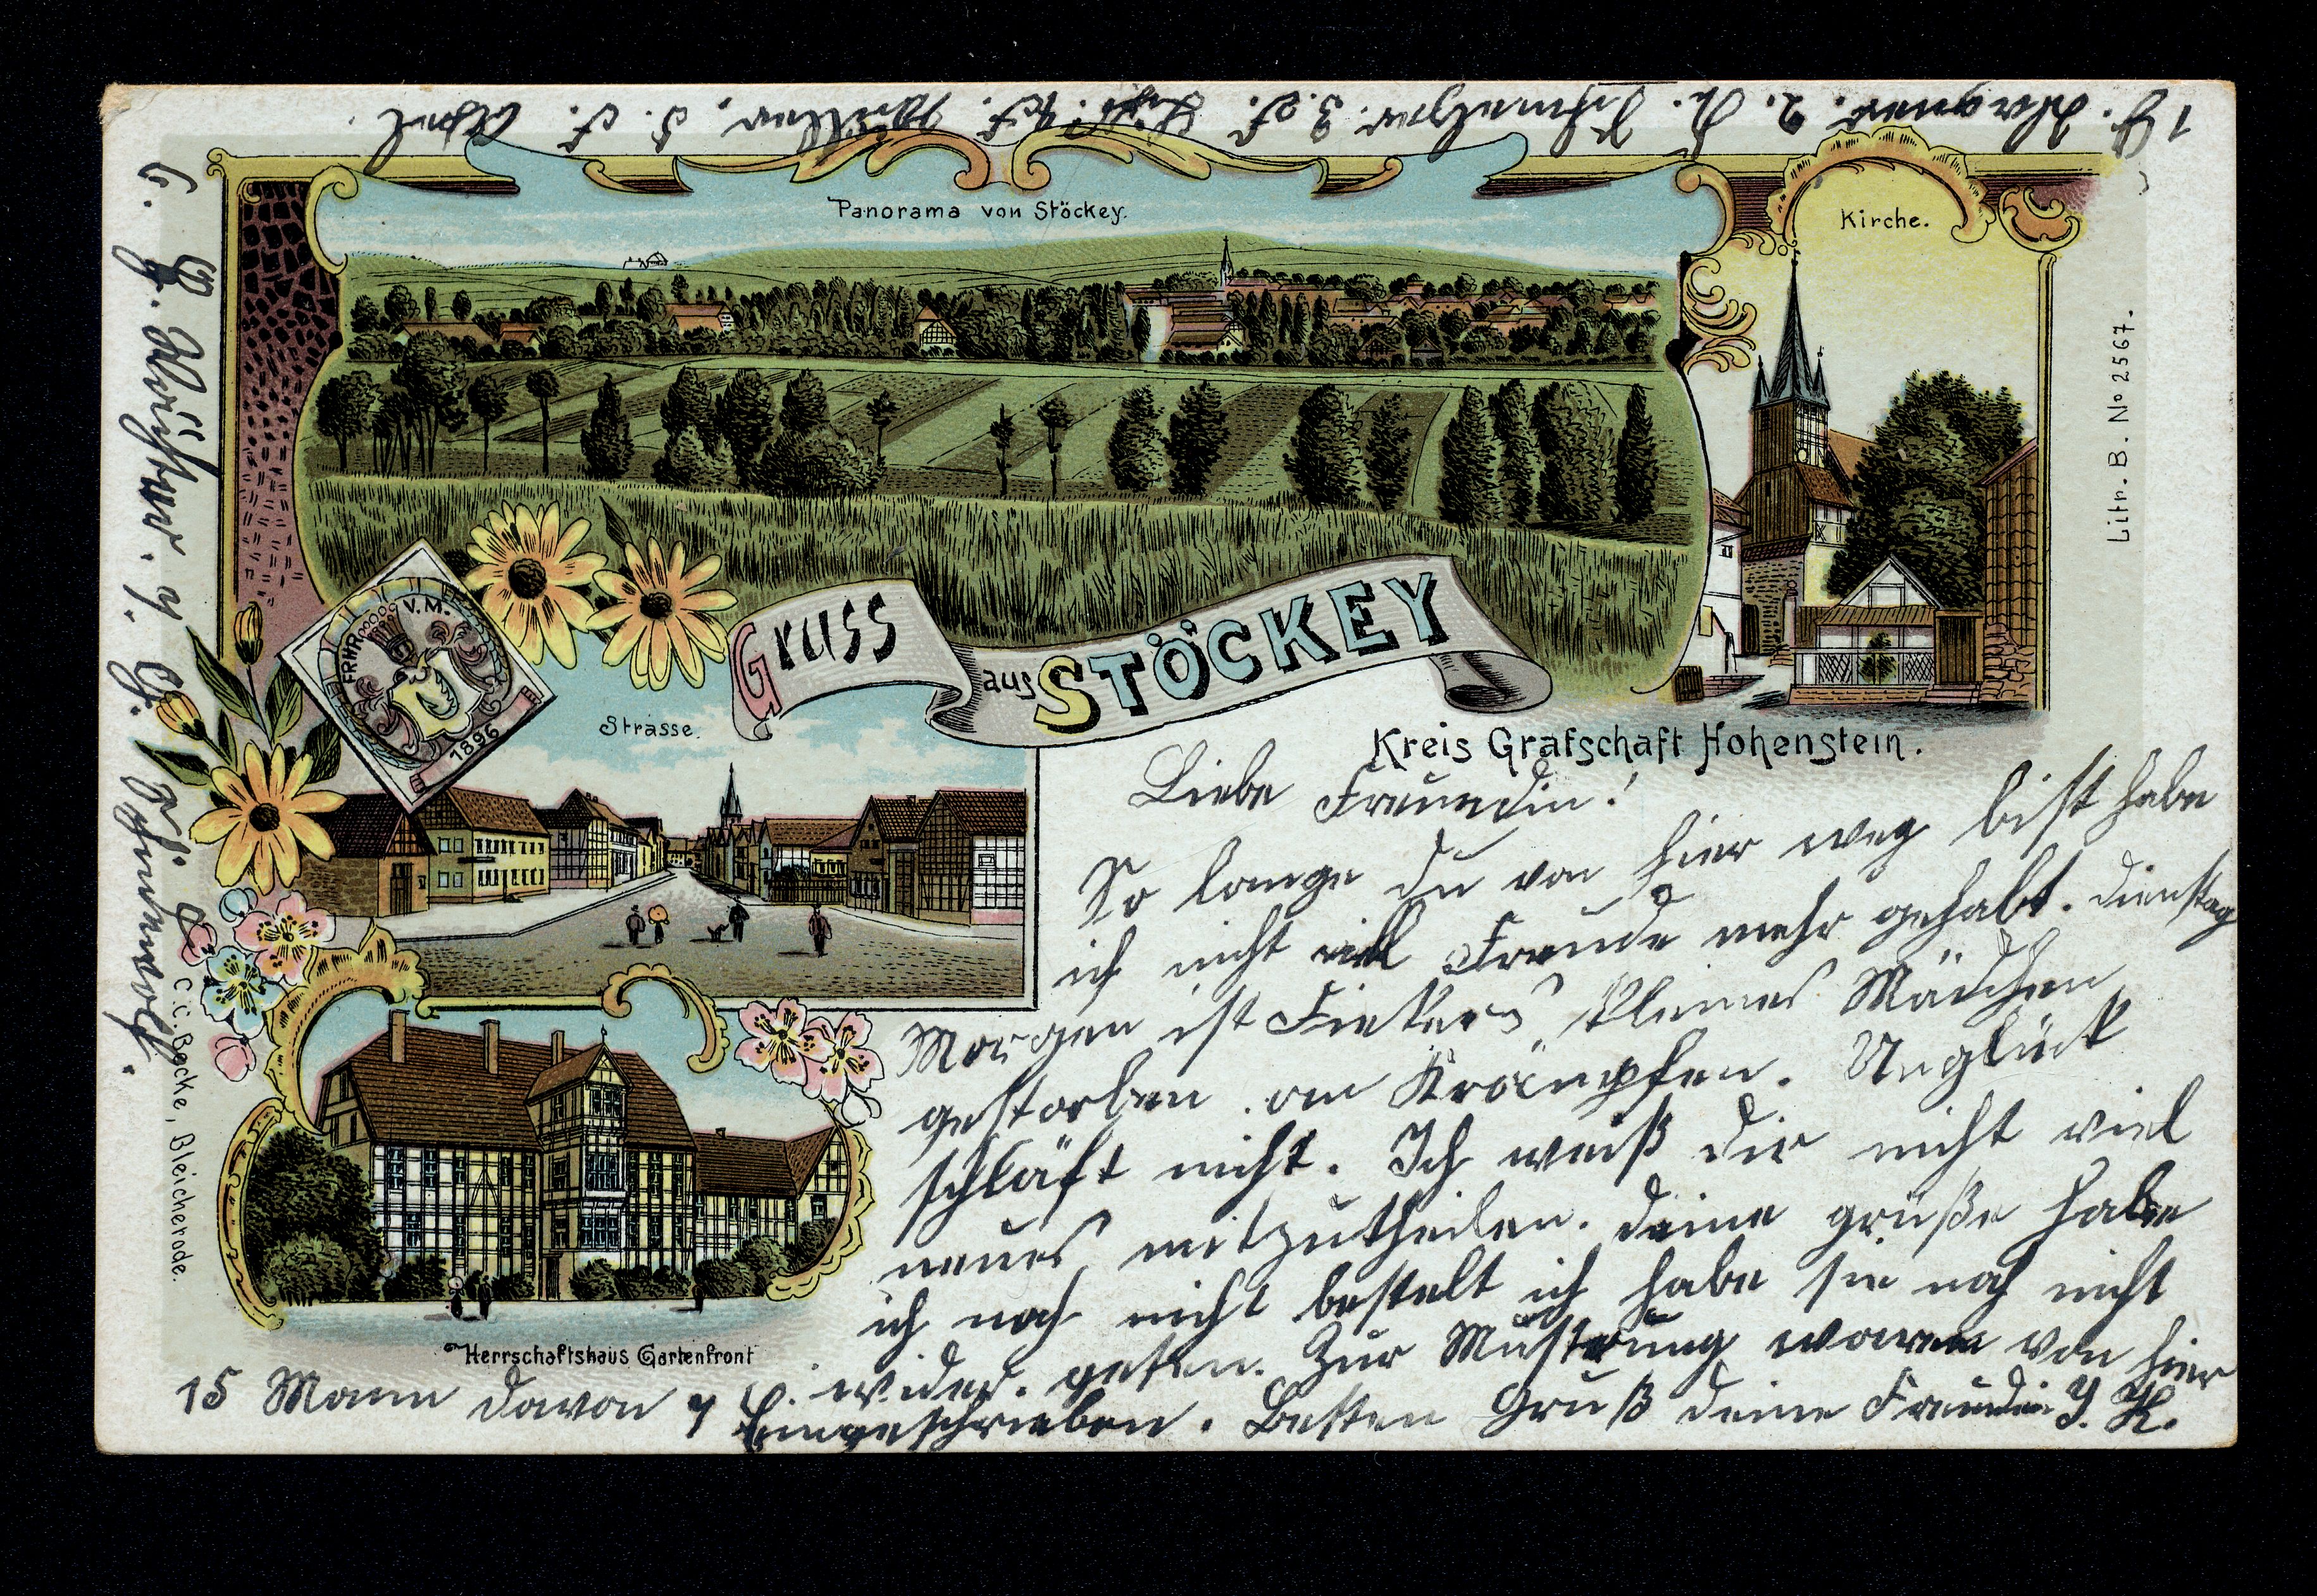 1 H. Wagner. 2. A. Schmelzer. 3. F. 4. F. Müller, 5. F. Apel.
6. G. Richter. 7. G. Schinnerolf.
Panorama von Stöckey.
Kirche.
Littr. B. No 2567.
FRHR V. M.
1896
Gruss aus STÖCKEY
Kreis Grafschaft Hohenstein.
Strasse.
C. C. Backe, Bleicherode.
Herrschaftshaus Gartenfront
Liebe Freundin!
So lange du von hier weg bist habe
ich nicht viel Freude mehr gehabt. Dienstag
Morgen ist Fiekers kleines Mädchen
gestorben an Krämpfen. Unglück
schläft nicht. Ich weiß dir nicht viel
neues mitzutheilen. Deine grüße habe
ich noch nicht bestelt ich habe sie noch nicht
wider. gesehn. Zur Musterung waren von hier
15 Mann davon 7 Eingeschrieben. Besten Gruß deine Freundin J. K.